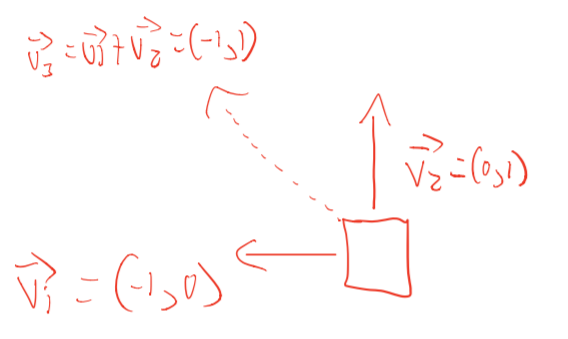 v⃗₃ = v⃗₁ + v⃗₂ = (-1,1)
v⃗₂ = (0,1)
v⃗₁ = (-1,0)